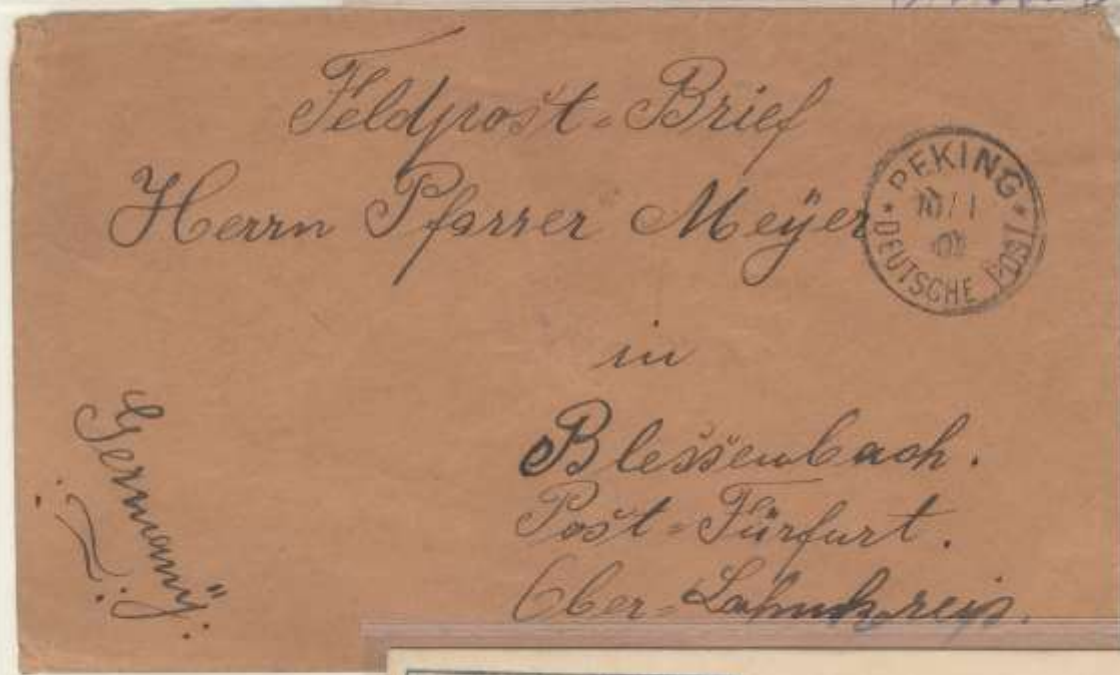 Feldpost-Brief
Herrn Pfarrer Meÿer
PEKING
10/1
DEUTSCHE POST
in
Blessenbach.
Post-Fürfurt.
Ober-Lahnkreis.
Germanÿ